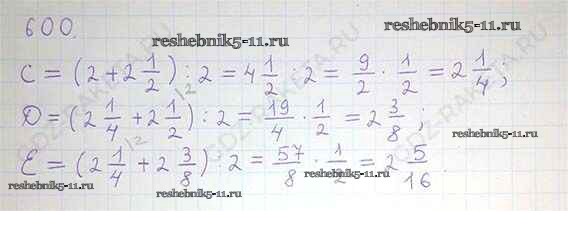 600.
reshebnik5-11.ru reshebnik5-11.ru
C = (2 + 2 1/2) : 2 = 4 1/2 : 2 = 9/2 · 1/2 = 2 1/4,
D = (2 1/4 + 2 1/2) : 2 = 19/4 · 1/2 = 2 3/8;
E = (2 1/4 + 2 3/8) : 2 = 37/8 · 1/2 = 2 5/16
reshebnik5-11.ru reshebnik5-11.ru
GDZ-RAKETA.RU
GDZ-RAKETA.RU